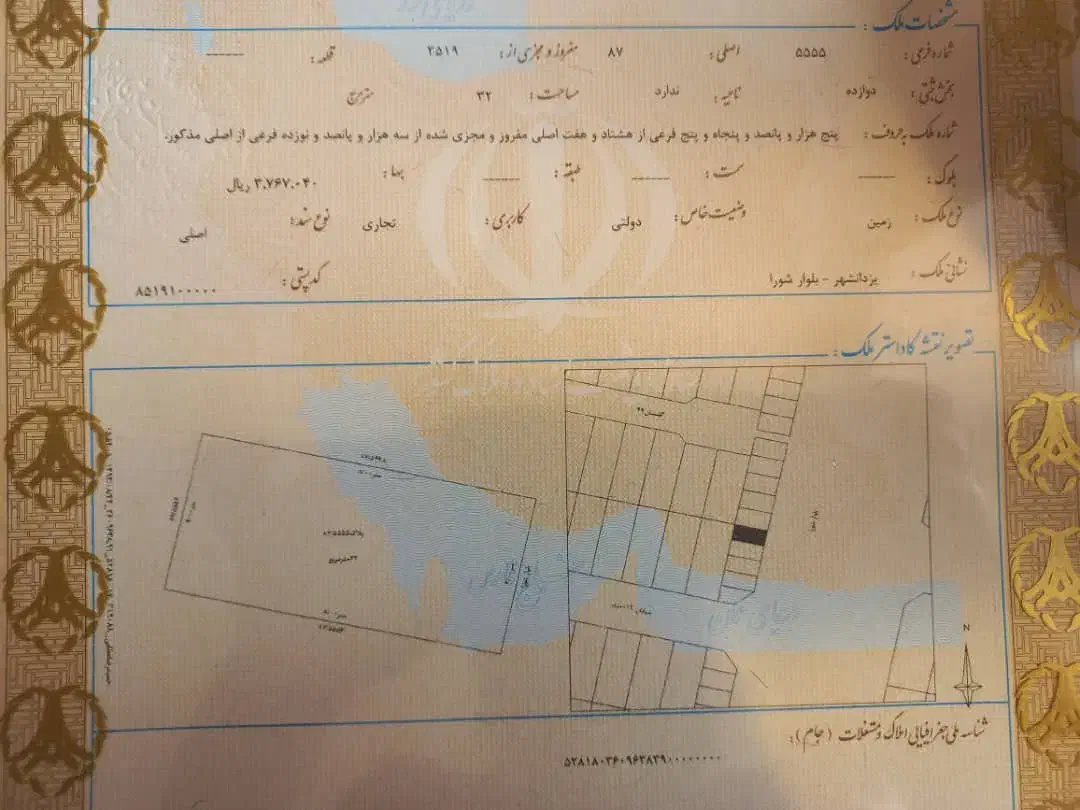 مشخصات ملک :
شماره فرعی : ۵۵۵۵ اصلی : ۸۷ مفروز و مجزی از : ۳۵۱۹ قطعه : ------
بخش ثبتی : دوازده ناحیه : ندارد مساحت : ۳۲ مترمربع
شماره ملک به حروف : پنج هزار و پانصد و پنجاه و پنج فرعی از هشتاد و هفت اصلی مفروز و مجزی شده از سه هزار و پانصد و نوزده فرعی از اصلی مذکور.
بلوک : ------ سمت : ------ طبقه : ------ بها : ۳.۷۶۷.۰۴۰ ریال
نوع ملک : زمین وضعیت خاص : دولتی کاربری : تجاری نوع سند : اصلی
نشانی ملک : یزدانشهر - بلوار شورا کد پستی : ۸۵۱۹۱۰۰۰۰۰
تصویر نقشه کاداستر ملک :
گلستان ۲۹
۳۲مترمربع
N
شناسه ملی جغرافیایی املاک و مستغلات ( جام ):